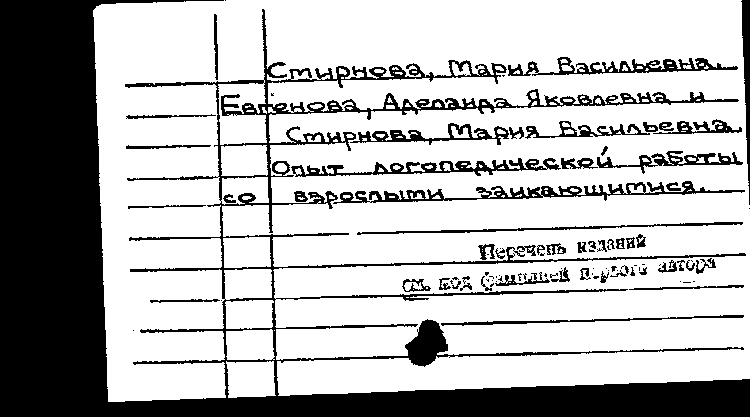 Смирнова, Мария Васильевна.
Евгенова, Аделаида Яковлевна и
Смирнова, Мария Васильевна.
Опыт логопедической работы
со взрослыми заикающимися.
Перечень изданий
см. под фамилией первого автора